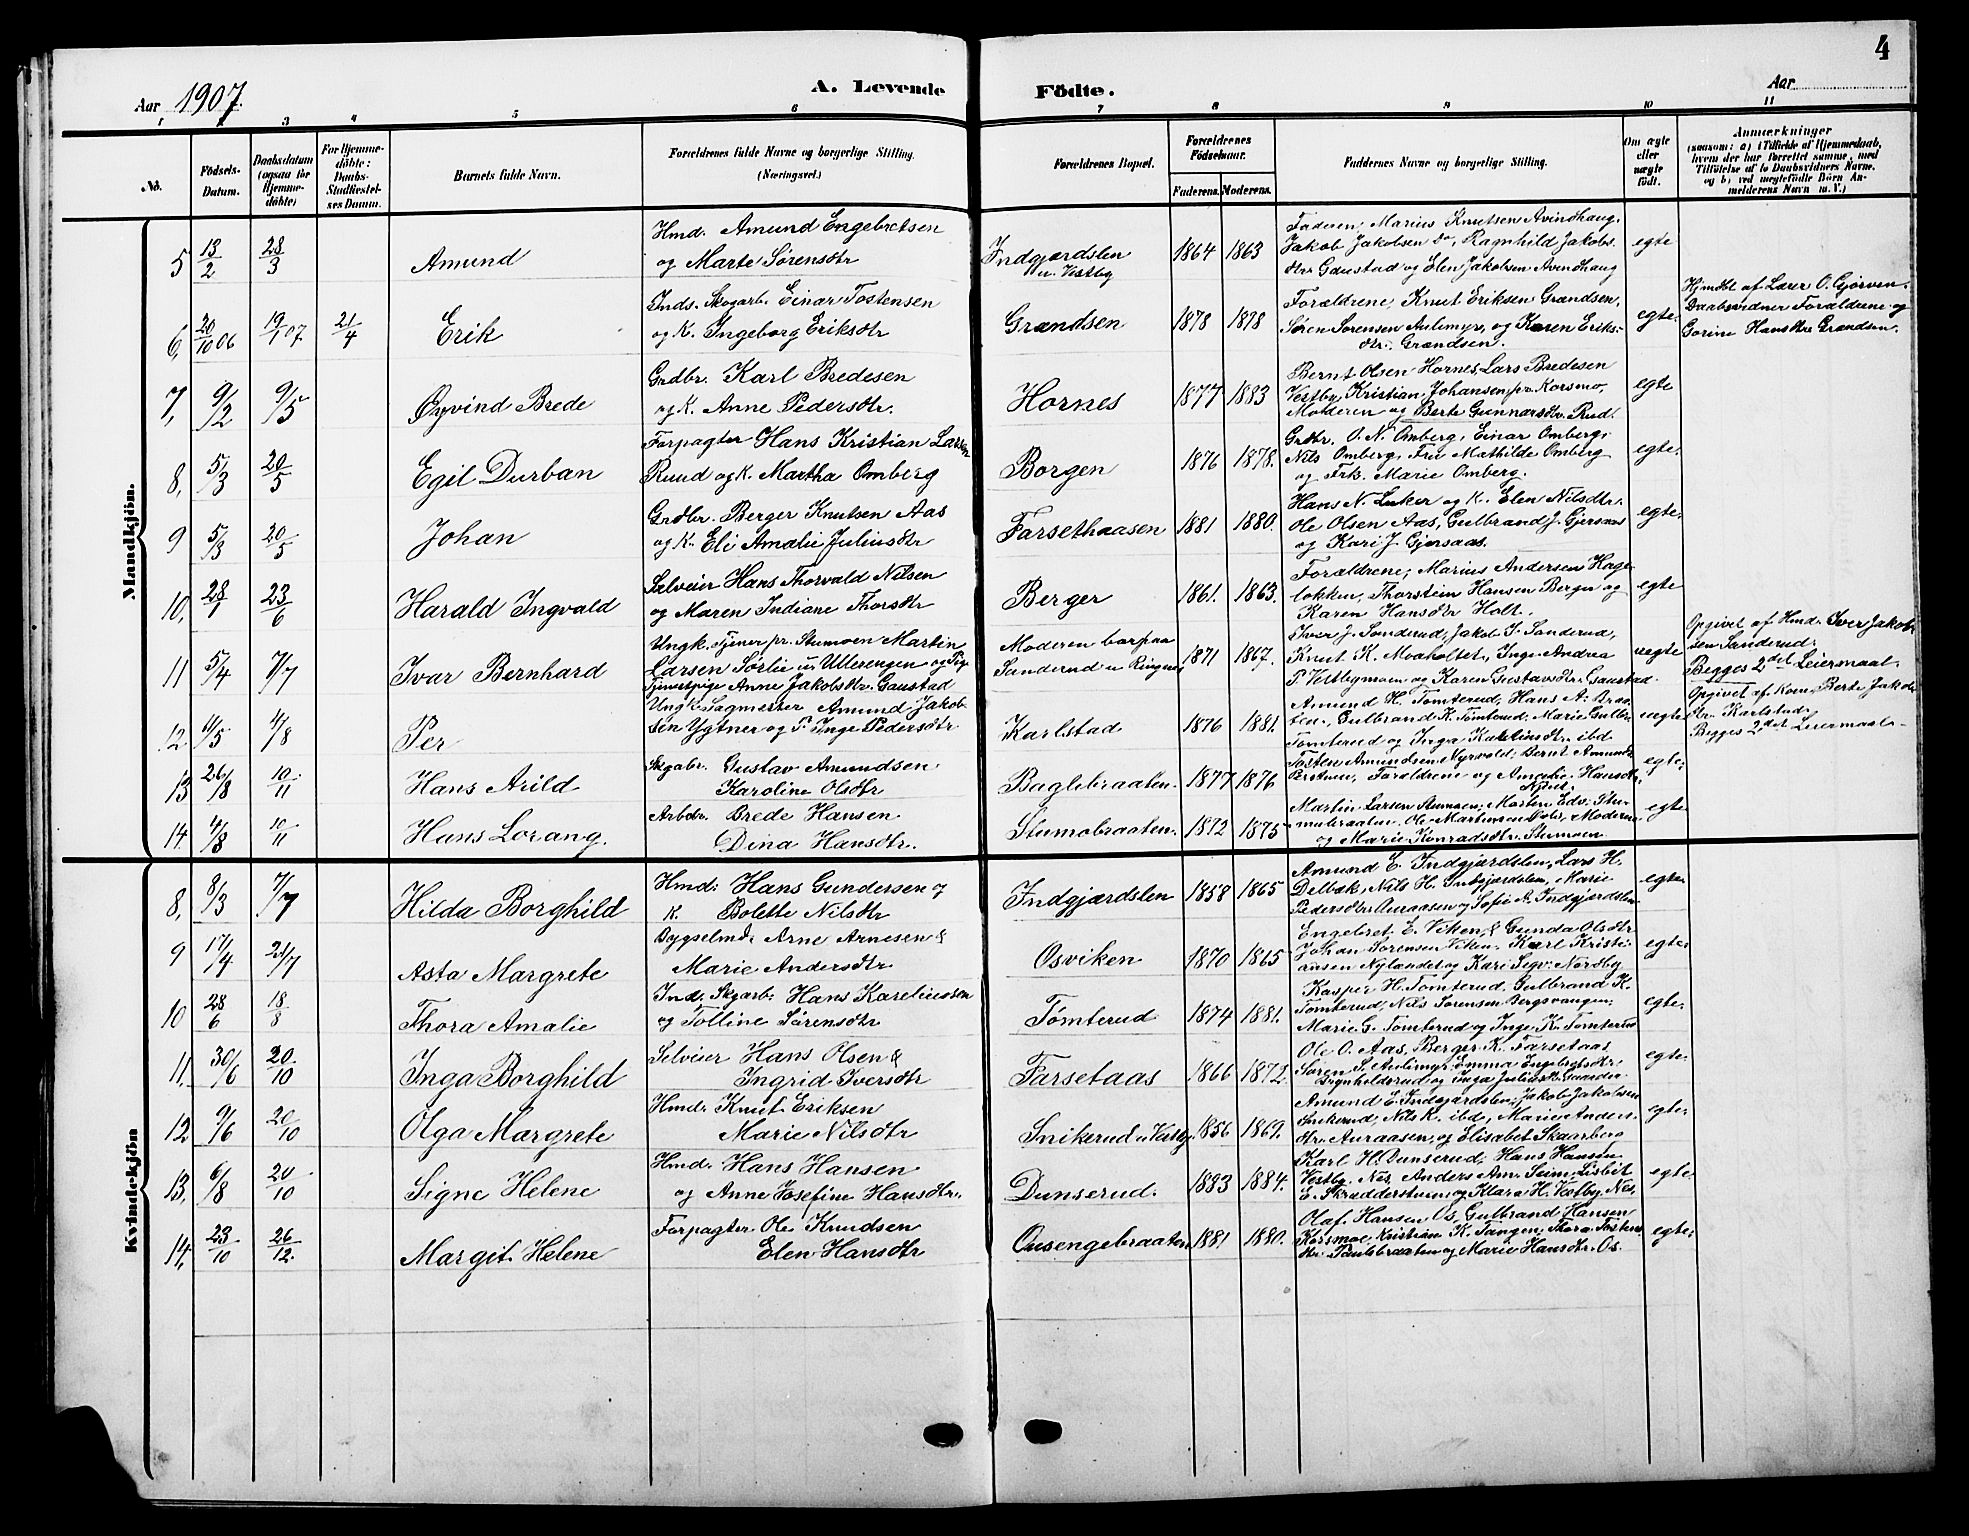 4
Aar 1907.
A. Levende
Födte.
Aar
1 2 3 4 5 6 7 8 9 10 11
No.
Födsels-
Datum.
Daabsdatum
(ogsaa for
Hjemme-
döbte)
For Hjemme-
döbte:
Daabs-
Stadfæstel-
ses Datum.
Barnets fulde Navn.
Forældrenes fulde Navne og borgerlige Stilling.
(Næringsvei.)
Forældrenes Bopæl.
Forældrenes
Födselsaar.
Faderens. Moderens.
Faddernes Navne og borgerlige Stilling.
Om ægte
eller
uægte
födt.
Anmærkninger
(saasom: a) i Tilfælde af Hjemmedaab,
hvem der har forrettet samme, med
Tilföielse af to Daabsvidners Navne.
og b) ved uægtefödte Börn An-
melderens Navn m. V.)
Mandkjön.
5 13/2 28/3 Amund
Hmd. Amund Engebretsen
og Marte Sørensdtr
Indgjærdslen
u. Vestby
1864 1863
Faderen, Marius Knutsen Avindhaug,
Jakob Jakobsen do, Ragnhild Jakobs
dtr. Gaustad og Elen Jakobsen Avindhaug
egte
6, 20/10 06 19/1 07 21/4 Erik
Inds. Skogarb. Einar Tostensen
og K. Ingeborg Eriksdtr
Grændsen
1878 1878
Forældrene, Knut Eriksen Grændsen,
Søren Sørensen Aulimyr, og Karen Eriks-
dtr. Grændsen.
egte
Hjmdbt af Lærer O. Gjørven.
Daabsvidner Forældrene og
Gorine Hansdtr Grændsen.
7, 9/2 9/5 Øyvind Brede
Grdbr. Karl Bredesen
og K. Anne Pedersdtr.
Hornes
1877 1883
Bernt Olsen Hornes, Lars Bredesen
Vestby, Kristian Johansen pr. Korsmo,
Moderen og Berte Gunnarsdtr. Rud.
egte
8, 5/3 20/5 Egil Durban
Forpagter Hans Kristian Larsen
Ruud og K. Martha Omberg
Borgen
1876 1878.
Grdbr. O. N. Omberg, Einar Omberg,
Nils Omberg, Fru Mathilde Omberg
og Frk. Marie Omberg.
egte
9 5/3 20/5 Johan
Grdbr. Berger Knutsen Aas
og K. Eli Amalie Juliusdtr
Farsethaasen
1881 1880.
Hans N. Luker og K. Elen Nilsdtr.
Ole Olsen Aas, Gulbrand J. Gjersaas
og Kari J. Gjersaas.
egte
10, 28/1 23/6 Harald Ingvald
Selveier Hans Thorvald Nilsen
og Maren Indiane Thorsdtr
Berger
1861. 1863.
Forældrene, Marius Andersen Hage-
løkken, Thorstein Hansen Berger og
Karen Hansdtr Holt.
egte
11 5/4 7/7 Ivar Bernhard
Ungk. Tjener pr. Stumoen Martin
Larsen Sørlie u/ Ullerengen og Pige
Tjenestpige Anne Jakobsdtr. Gaustad
Moderen bor paa
Sanderud u Ringnes
1871 1867.
Iver J. Sanderud, Jakob I. Sanderud,
Knut K. Moaholtet, Inge Andrea
P. Vestbymoen og Karen Gustavsdtr. Gaustad.
uegte
Opgivet af Hmd. Iver Jakob-
sen Sanderud.
Begges 2det Leiermaal
12 6/5 4/8 Per
Ungk. Sagmester Amund Jakob-
sen Ygtner og P. Inge Pedersdtr
Karlstad
1876 1881.
Amund H. Tømterud, Hans A. Braa-
ten, Gulbrand K. Tømterud, Marie Gulbr.
Tømterud og Inga Karelinsdtr. ibd
uegte
Opgivet af Kone Berte Jakobs
dtr. Karlstad.
Begges 2det Leiermaal.
13 26/8 10/11 Hans Arild
Skgabr. Gustav Amundsen.
Karoline Olsdtr
Baglebraaten.
1877 1876
Tosten Amundsen Myrvold, Bernt Amunds.
Forældrene og Amalie Hansdtr.
egte
14. 4/8 10/11 Hans Lorang.
Arbdr. Brede Hansen
Dina Hansdtr.
Stumobraaten.
1872 1875
Martin Larsen Stumoen, Marten Edv. Stu-
mobraaten, Ole Martinsen, Moderen
og Marie Konradsdtr. Stumoen
egte
Kvindekjön
8, 8/3 7/7 Hilda Borghild
Hmd. Hans Gundersen og
K. Bolette Nilsdtr
Indgjærdslen
1858 1865
Amund E. Indgjærdslen, Lars H.
Delbæk, Nils H. Indgjærdslen, Marie
Pedersdtr. Auraasen og Sofie A. Indgjærdslen
egte
9 17/4 21/7 Asta Margrete
Bygselmd. Arne Arnesen &
Marie Andersdtr
Osviken
1870 1865
Engebret E. Viken, & Gunda Olsdtr
Johan Sørensen Viken. Karl Kristi-
ansen Nylandet og Kari Sigv. Nordby
egte
10 28/6 18/8 Thora Amalie
Ind. Skgarb. Hans Kareliussen
og Tolline Sørensdtr
Tømterud
1874 1881.
Kasper H. Tømterud, Gulbrand K.
Tømterud, Nils Sørensen Bergsvangen,
Marie G. Tømterud og Inge K. Tømterud
egte
11, 30/6 20/10 Inga Borghild
Selveier Hans Olsen &
Ingrid Iversdtr
Farsetaas
1866 1872.
Ole O. Aas, Berger K. Farsetaas,
Søren S. Aulimyr, Emma Engebretsdtr.
og Inga Juliusdtr.
egte
12 9/6 20/10 Olga Margrete
Hmd. Knut Eriksen
Marie Nilsdtr
Snikerud u Vestby.
1856 1869.
Amund E. Indgjærdslen, Jakob Jakobsen
Snikerud, Nils K. ibd, Marie Anders
dtr. Auraasen, og Elisabet Skaarberg
egte
13, 6/8 20/10 Signe Helene
Hmd. Hans Hansen
og Anne Josefine Hansdtr.
Dunserud.
1883 1884.
Karl H. Dunserud, Hans Hansen
Vestby, Nes, Anders Am. Seim, Lisbet
E. Skrædderstuen og Klara H. Vestby, Nes,
egte
14, 23/10 26/12. Margit Helene
Forpagter Ole Knudsen
Elen Hansdtr
Ousengebraaten
1881 1880.
Olaf Hansen Os, Gulbrand Hansen
Korsmoe, Kristian K. Tangen, Thora Tostens
dtr. Paulsbraaten og Marie Hansdtr. Os.
egte